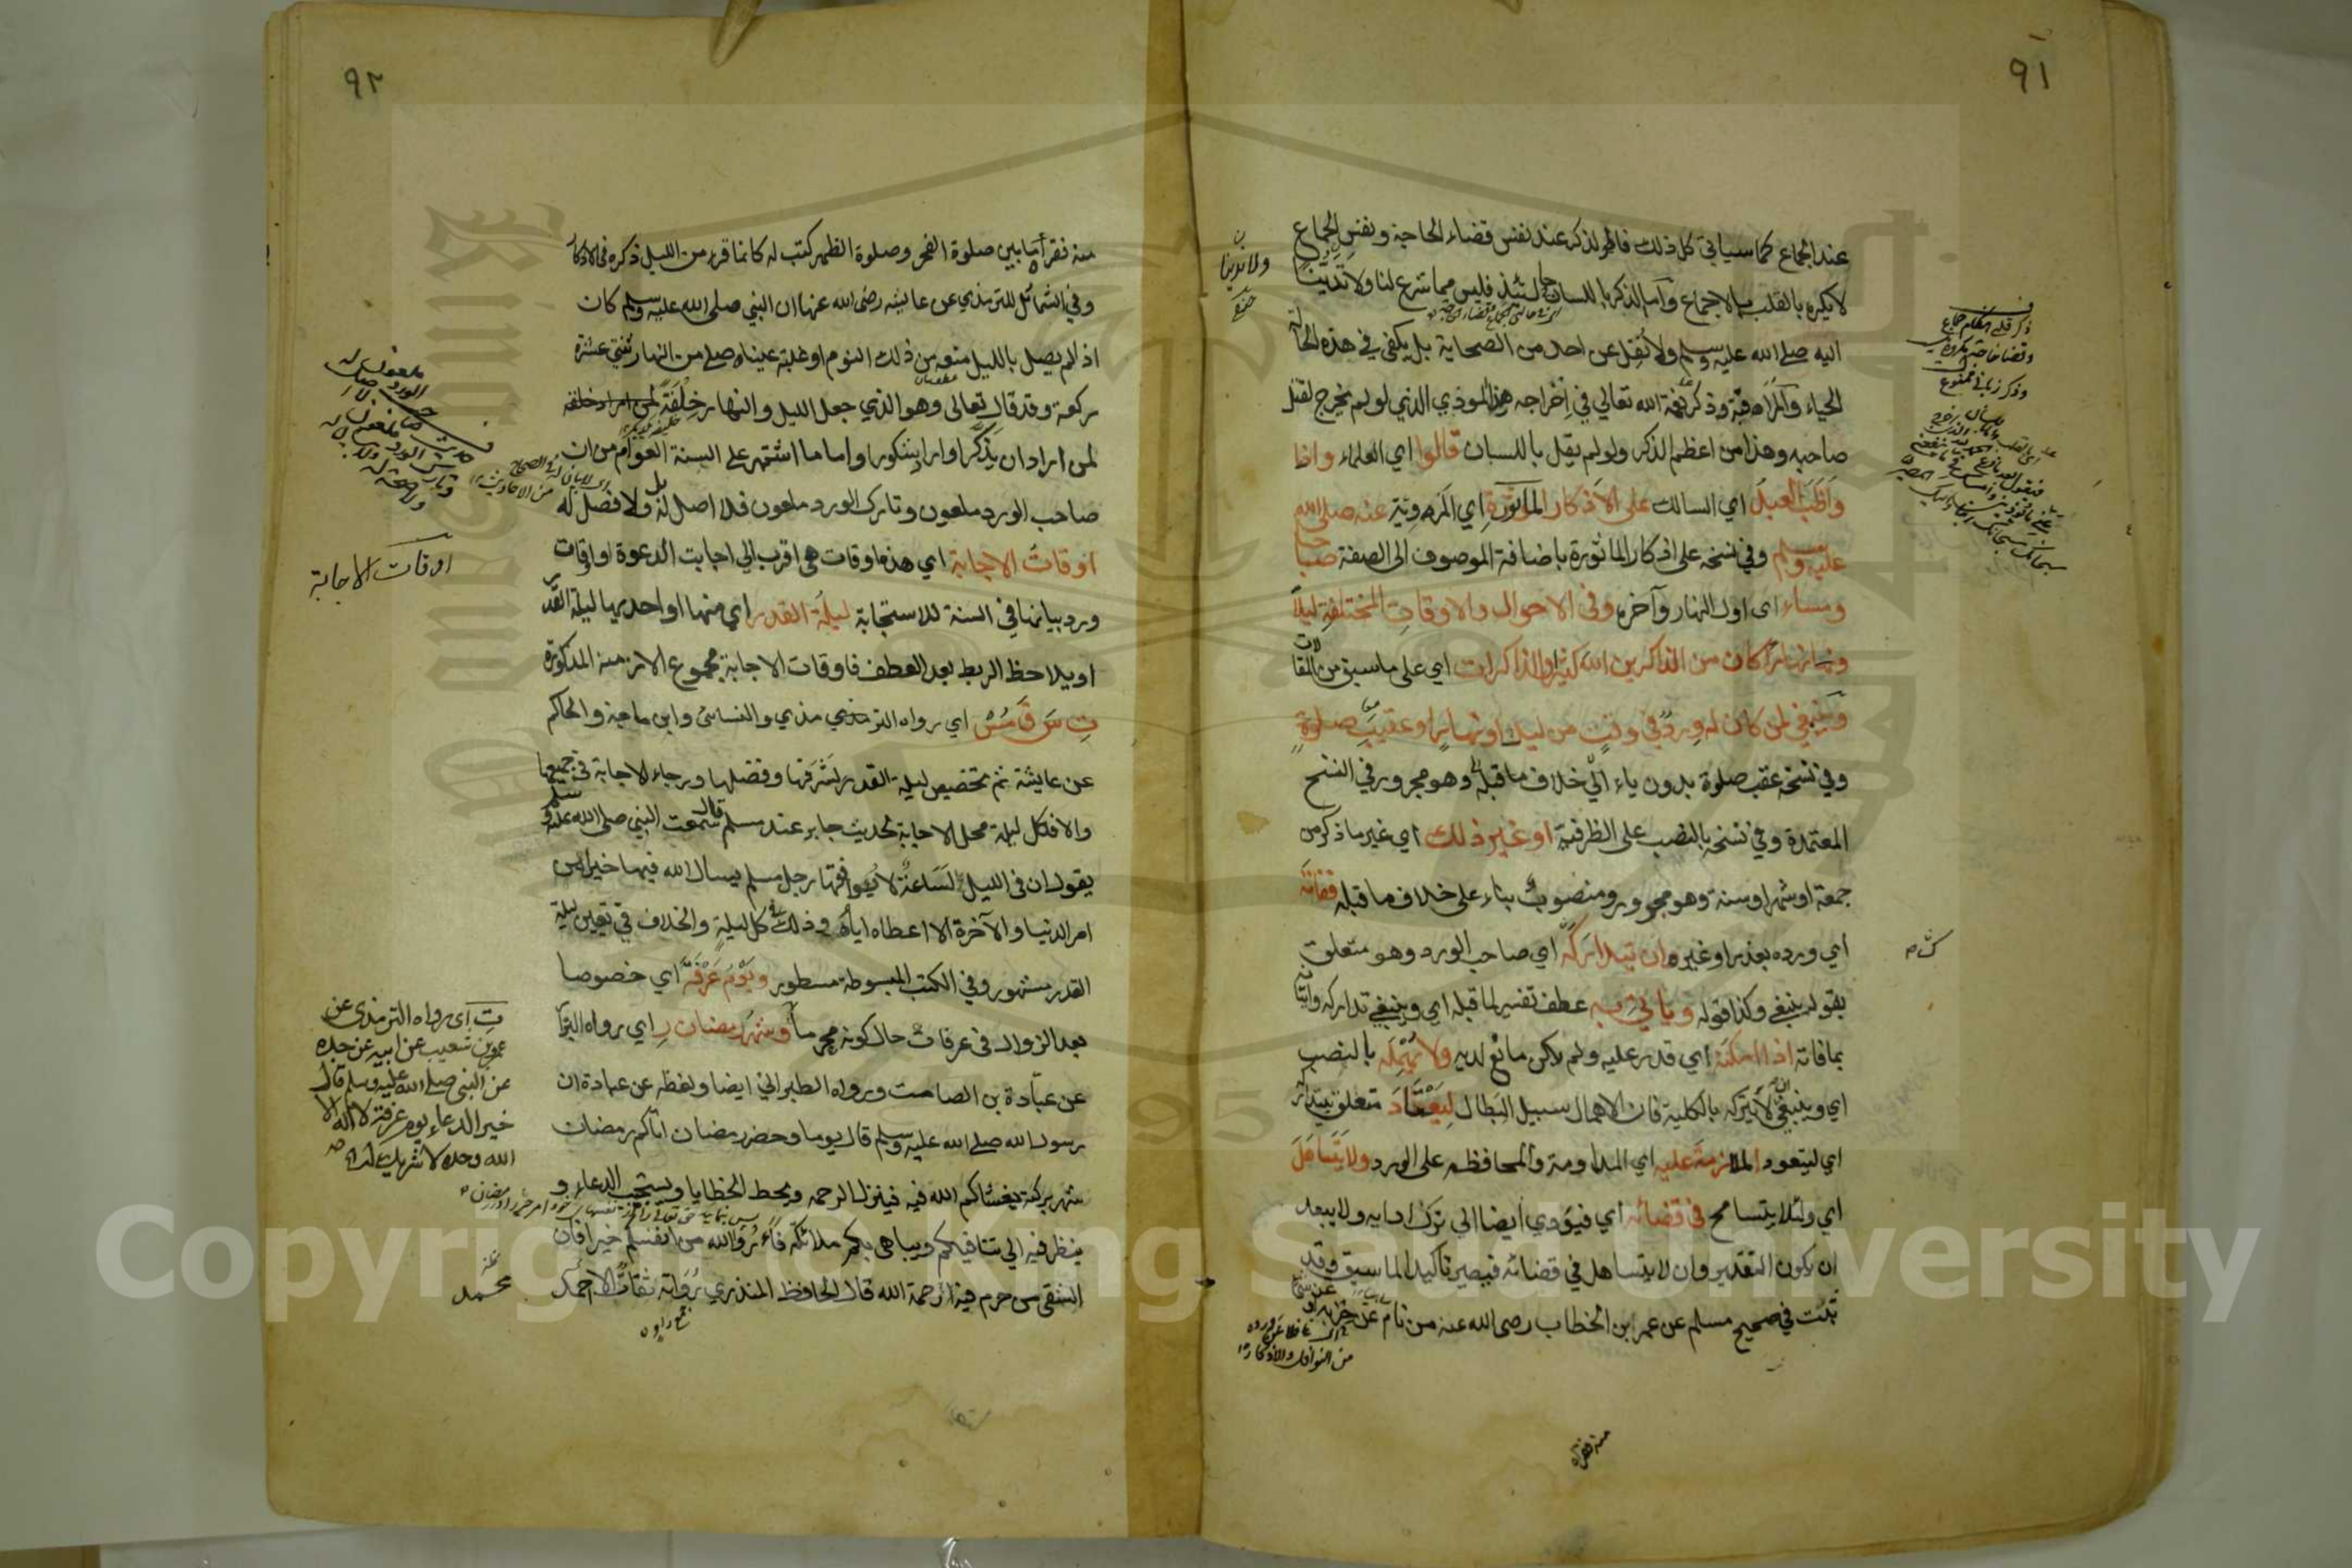 ٩١
عند الجماع كما سياتي كل ذلك فالمراد لذكر عند نفس قضاء الحاجة ونفس الجماع
لا يكره بالقلب بالاجماع وأما الذكر باللسان حالتئذ فليس مما شرع لنا ولا ندبنا
اليه صلى الله عليه وسلم ولا نُقِل عن احد من الصحابة بل يكفي في هذه الحالة
الحياء والمراقبة وذكر نعمة الله تعالي في اِخراجه هذا الموذي الذي لو لم يخرج لقتل
صاحبه وهذا من اعظم الذكر ولو لم يقل باللسان قالوا اي العلماء واذا
وَاظَبَ العبدُ اي السالك على الاذكار الماثورة اي المَروِيّة عنه صلى الله
عليه وسلم وفي نسخه على اذكار الماثورة باضافة الموصوف الى الصفة صباحا
ومساء اى اول النهار وآخره وفى الاحوال والاوقات المختلفة ليلاً
ونهارا كان من الذاكرين الله كثيرا والذاكرات اي على ما سبق من المقالات
وينبغي لمن كان له وِردٌ في وقتٍ من ليل او نهار او عقيب صلوةٍ
وفي نسخة عقب صلوة بدون ياء الي خلاف ما قبله وهو مجرور في النسخ
المعتمدة وفي نسخه بالنصب على الظرفية او غير ذلك اي غير ما ذكر من
جمعة او شهر او سنة وهو مجرور ومنصوب بناء على خلاف ما قبله ففاته
اي ورده بعذر او غيره ان يتداركه اي صاحب الورد وهو متعلق
بقوله ينبغي وكذا قوله وياتي به عطف تفسير لما قبله اي وينبغي تداركه واتيانه
بما فاته اذا امكنه اي قدر عليه ولم يكن مانع لديه ولا يُهْمِلَه بالنصب
اي وينبغي ان لا يتركه بالكلية فان الاهمال سبيل البطال لِيَعْتَادَ متعلق بيتداركه
اي ليتعود الملازمة عليه اي المداومة والمحافظه على الورد ولا يَتَسَاهَلَ
اي ولئلا يتسامح في قضائه اي فيؤدي أيضا الي ترك ادايه ولا يبعد
ان يكون التقدير وان لا يتساهل في قضائه فيصير تاكيدا لما سبق وقد
ثبت في صحيح مسلم عن عمر ابن الخطاب رضى الله عنه من نام عن حزبه او عن شيئ
منه فقراه
٩٢
منه فقراه ما بين صلوة الفجر وصلوة الظهر كتب له كانما قره من الليل ذكره فى الاذكار
وفي الشمائل للترمذي عن عايشه رضى الله عنها ان النبي صلى الله عليه وسلم كان
اذا لم يصل بالليل منعه من ذلك النوم او غلبة عيناه صلى من النهار ثنتي عشرة
ركعة وقد قال تعالى وهو الذي جعل الليل والنهار خِلْفَةً
لمن اراد ان يَذَّكَّر او اراد شكورا واما ما اشتهر على السنة العوام من ان
صاحب الورد ملعون وتارك الورد ملعون فلا اصل له بل ولا فصل له
اوقاتُ الاجابة اي هذه اوقات هى اقرب الي اجابت الدعوة او اوقات
ورد بيانها في السنة للاستجابة ليلة القدر اي منها او احديها ليلة القدر
او يلاحظ الربط بعد العطف فاوقات الاجابة مجموع الازمنه المذكورة
تِ سَ قَ مُسْ اي رواه الترمذي والنسائى وابن ماجة والحاكم
عن عايشة ثم تخصيص ليلة القدر لشَرَفها وفضلها ورجاء الاجابة في جميعها
والا فكل ليلة محل الاجابة لحديث جابر عند مسلم قال سمعت النبي صلى الله عليه وسلم
يقول ان فى الليل لسَاعةٌ لا يوافقها رجل مسلم يسال الله فيها خيرا من
امر الدنيا والآخرة الا اعطاه اياه وذلك في كل ليلةٍ والخلاف في تعيين ليلة
القدر مشهور وفي الكتب المبسوطة مسطور ويَوْمُ عَرَفَةَ اي خصوصا
بعد الزوال فى عرفات حال كونه محرما وشهرُ رمضان رِ اي رواه البزار
عن عبادة بن الصامت ورواه الطبراني ايضا ولفظه عن عبادة ان
رسول الله صلى الله عليه وسلم قال يوما وحضر رمضان اتاكم رمضان
شهر بركة يغشاكم الله فيه فينزل الرحمه ويحط الخطايا ويستجيب الدعاء و
ينظر فيه الي تنافسكم ويباهى بكم ملائكته فأرُوا الله من انفسكم خيرا فان
الشقى من حرم فيه رحمة الله قال الحافظ المنذري رُوَاته ثقات الا محمد
اوقات الاجابة
تِ اى رواه الترمذى عن
عمرو بن شعيب عن ابيه عن جده
عن النبى صلى الله عليه وسلم قال
خير الدعاء يوم عرفة لا اله الا
الله وحده لا شريك له
Copyright © King Saud University